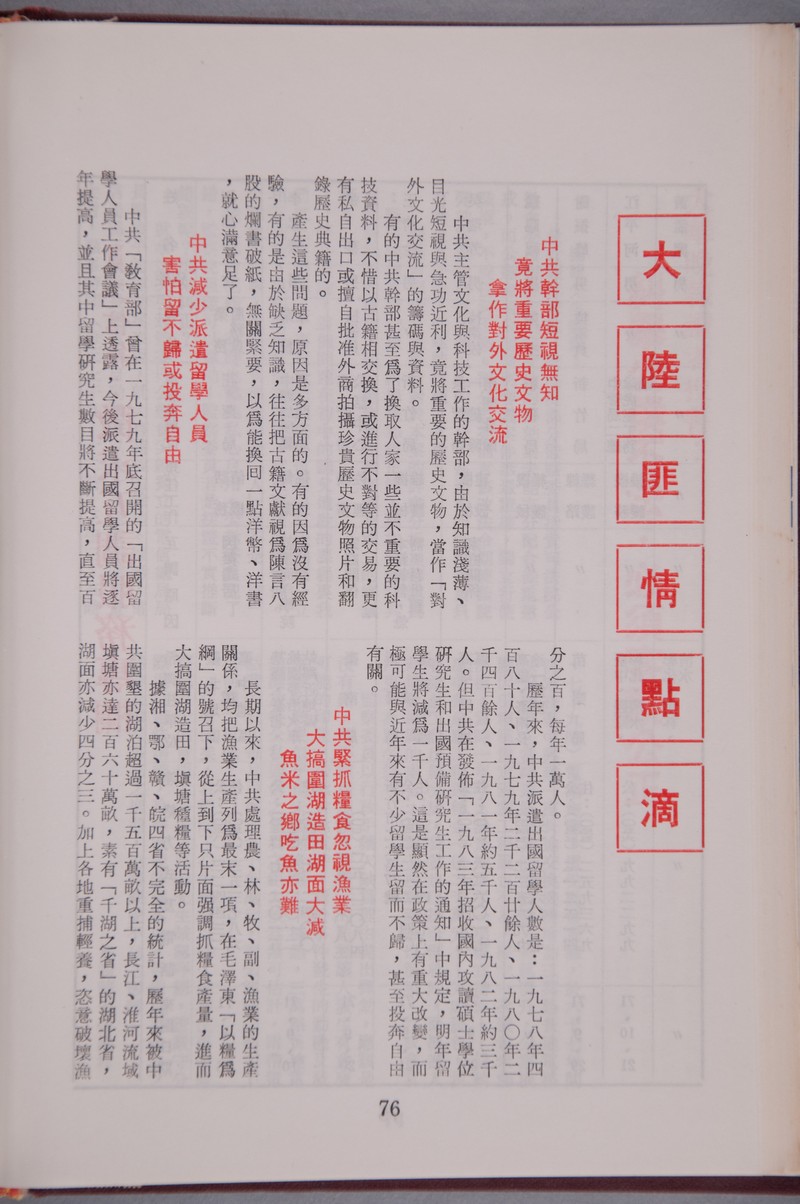 大陸匪情點滴
中共幹部短視無知
竟將重要歷史文物
拿作對外文化交流
中共主管文化與科技工作的幹部，由於知識淺薄、
目光短視與急功近利，竟將重要的歷史文物，當作「對
外文化交流」的籌碼與資料。
有的中共幹部甚至爲了換取人家一些並不重要的科
技資料，不惜以古籍相交換，或進行不對等的交易，更
有私自出口或擅自批准外商拍攝珍貴歷史文物照片和翻
錄歷史典籍的。
產生這些問題，原因是多方面的。有的因爲沒有經
驗，有的是由於缺乏知識，往往把古籍文獻視爲陳言八
股的爛書破紙，無關緊要，以爲能換回一點洋幣、洋書
，就心滿意足了。
中共減少派遣留學人員
害怕留不歸或投奔自由
中共「教育部」曾在一九七九年底召開的「出國留
學人員工作會議」上透露，今後派遣出國留學人員將逐
年提高，並且其中留學研究生數目將不斷提高，直至百
分之百，每年一萬人。
歷年來，中共派遣出國留學人數是：一九七八年四
百八十人、一九七九年二千二百廿餘人、一九八〇年二
千四百餘人、一九八一年約五千人、一九八二年約三千
人。但中共在發佈「一九八三年招收國內攻讀碩士學位
研究生和出國預備研究生工作的通知」中規定，明年留
學生將減爲一千人。這是顯然在政策上有重大改變，而
極可能與近年來有不少留學生留而不歸，甚至投奔自由
有關。
中共緊抓糧食忽視漁業
大搞圍湖造田湖面大減
魚米之鄉吃魚亦難
長期以來，中共處理農、林、牧、副、漁業的生產
關係，均把漁業生產列爲最末一項，在毛澤東「以糧爲
綱」的號召下，從上到下只片面强調抓糧食產量，進而
大搞圍湖造田，塡塘種糧等活動。
據湘、鄂、贛、皖四省不完全的統計，歷年來被中
共圍墾的湖泊超過一千五百萬畝以上，長江、淮河流域
塡塘亦達二百六十萬畝，素有「千湖之省」的湖北省，
湖面亦減少四分之三。加上各地重捕輕養，恣意破壞漁
76